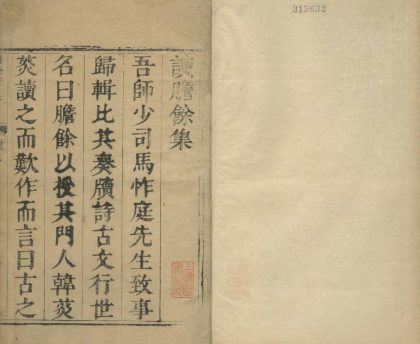 315632
讀膽餘集
吾師少司馬怍庭先生致事
歸輯比其奏牘詩古文行世
名曰膽餘以授其門人韓菼
菼讀之而歎作而言曰古之